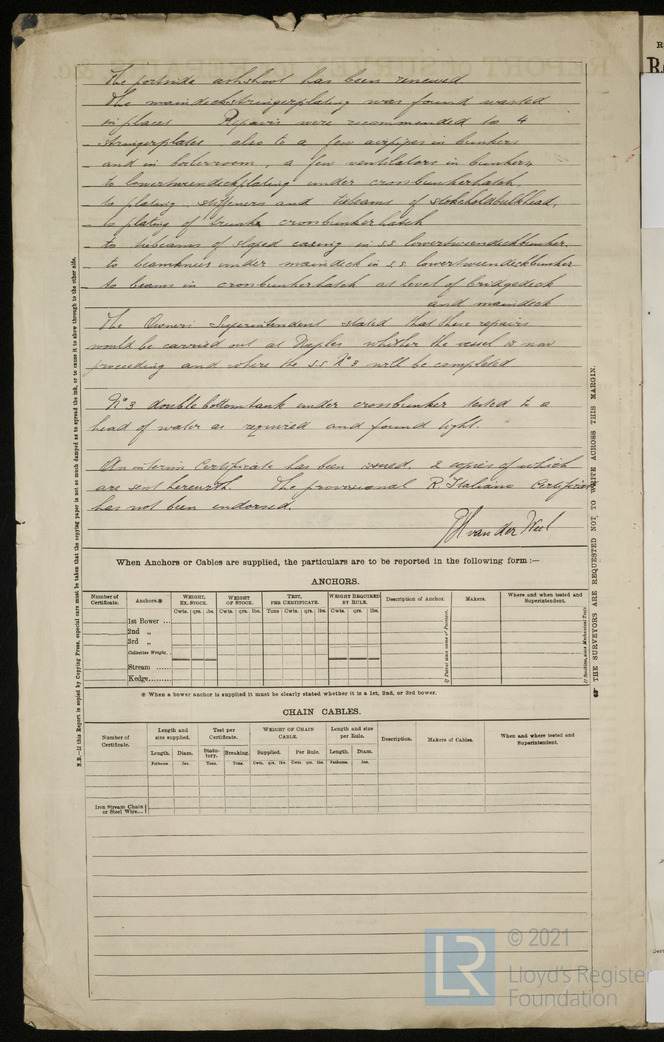 The portside ashshoot has been renewed
The maindeckstringerplating was found wasted
in places Repairs were recommended to 4
stringerplates also to a few airpipes in bunkers
and in boilerroom, a few ventilators in bunkers,
to lowertweendeckplating under crossbunkerhatch,
to plating, stiffeners and tiebeams of stokeholdbulkhead,
to plating of trunk crossbunkerhatch
to tiebeams of sloped casing in s.s. lowertweendeckbunker
to beamknees under maindeck in s.s. lowertweendeckbunker
to beams in crossbunkerhatch at level of bridgedeck
and maindeck
The Owners Superintendent stated that these repairs
would be carried out at Naples whither the vessel is now
proceeding and where the S.S. No 3 will be completed
No 3 double bottom tank under crossbunker tested to a
head of water as required and found tight.
An interim Certificate has been issued, 2 copies of which
are sent herewith. The provisional R. Italiano Certificate
has not been endorsed.
van der
When Anchors or Cables are supplied, the particulars are to be reported in the following form :—
ANCHORS.
Number of Certificate. Anchors.* WEIGHT, EX. STOCK. WEIGHT OF STOCK. TEST, PER CERTIFICATE. WEIGHT REQUIRED BY RULE. Description of Anchor. Makers. Where and when tested and Superintendent.
Cwts. qrs. lbs. Cwts. qrs. lbs. Tons Cwts. qrs. lbs. Cwts. qrs. lbs.
1st Bower ...
2nd „
3rd „
Collective Weight.
Stream ......
Kedge.........
* When a bower anchor is supplied it must be clearly stated whether it is a 1st, 2nd, or 3rd bower.
CHAIN CABLES.
Number of Certificate. Length and size supplied. Test per Certificate. WEIGHT OF CHAIN CABLE. Length and size per Rule. Description. Makers of Cables. When and where tested and Superintendent.
Length. Diam. Statutory. Breaking. Supplied. Per Rule. Length. Diam.
Fathoms. Ins. Tons. Tons. Cwts. qrs. lbs. Cwts. qrs. lbs. Fathoms. Ins.
Iron Stream Chain or Steel Wire...
N.B.—If this Report is copied by Copying Press, especial care must be taken that the copying paper is not so much damped as to spread the ink, or to cause it to show through to the other side.
THE SURVEYORS ARE REQUESTED NOT TO WRITE ACROSS THIS MARGIN.
LR
© 2021
Lloyd's Register
Foundation